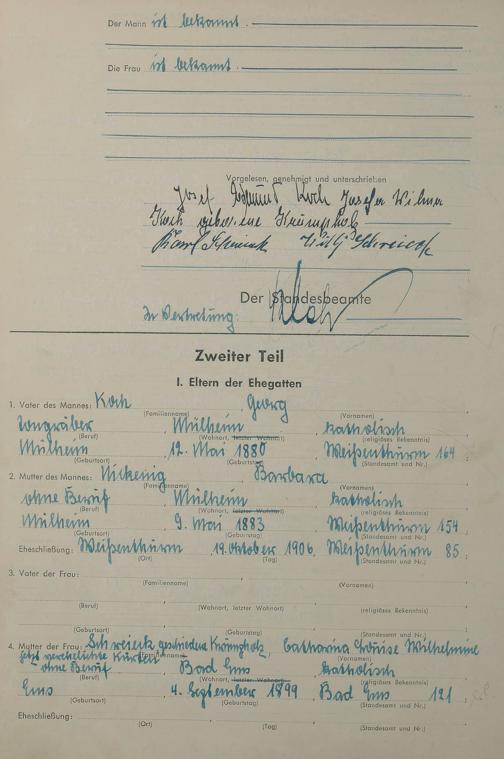 Der Mann ist bekannt
Die Frau ist bekannt
Vorgelesen, genehmigt und unterschrieben
Josef Koch
Koch geborene Krumpholz
Karl Schreieck Schreieck
Der Standesbeamte
In Vertretung:
Zweiter Teil
I. Eltern der Ehegatten
1. Vater des Mannes: Koch Georg
(Familienname) (Vornamen)
Tongräber Mülheim katholisch
(Beruf) (Wohnort, letzter Wohnort) (religiöses Bekenntnis)
Mülheim 12. Mai 1880 Weißenthurm 164
(Geburtsort) (Geburtstag) (Standesamt und Nr.)
2. Mutter des Mannes: Nickenig Barbara
(Familienname) (Vornamen)
ohne Beruf Mülheim katholisch
(Beruf) (Wohnort, letzter Wohnort) (religiöses Bekenntnis)
Mülheim 9. Mai 1883 Weißenthurm 154
(Geburtsort) (Geburtstag) (Standesamt und Nr.)
Eheschließung: Weißenthurm 19. Oktober 1906 Weißenthurm 85
(Ort) (Tag) (Standesamt und Nr.)
3. Vater der Frau:
(Familienname) (Vornamen)
(Beruf) (Wohnort, letzter Wohnort) (religiöses Bekenntnis)
(Geburtsort) (Geburtstag) (Standesamt und Nr.)
4. Mutter der Frau: Schreieck geschiedene Krumpholz, Catharina Louise Wilhelmine
jetzt verehelichte (Familienname) (Vornamen)
ohne Beruf Bad Ems katholisch
(Beruf) (Wohnort, letzter Wohnort) (religiöses Bekenntnis)
Ems 4. September 1899 Bad Ems 121
(Geburtsort) (Geburtstag) (Standesamt und Nr.)
Eheschließung:
(Ort) (Tag) (Standesamt und Nr.)